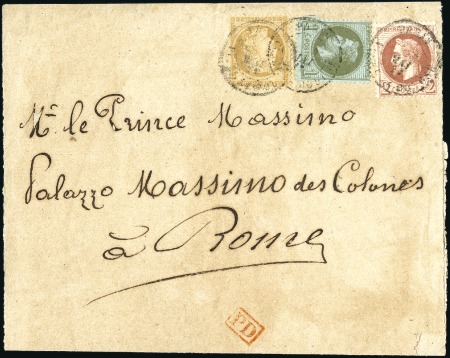 Mr le Prince Massimo
Palazzo Massimo des Colones
à Rome
PD